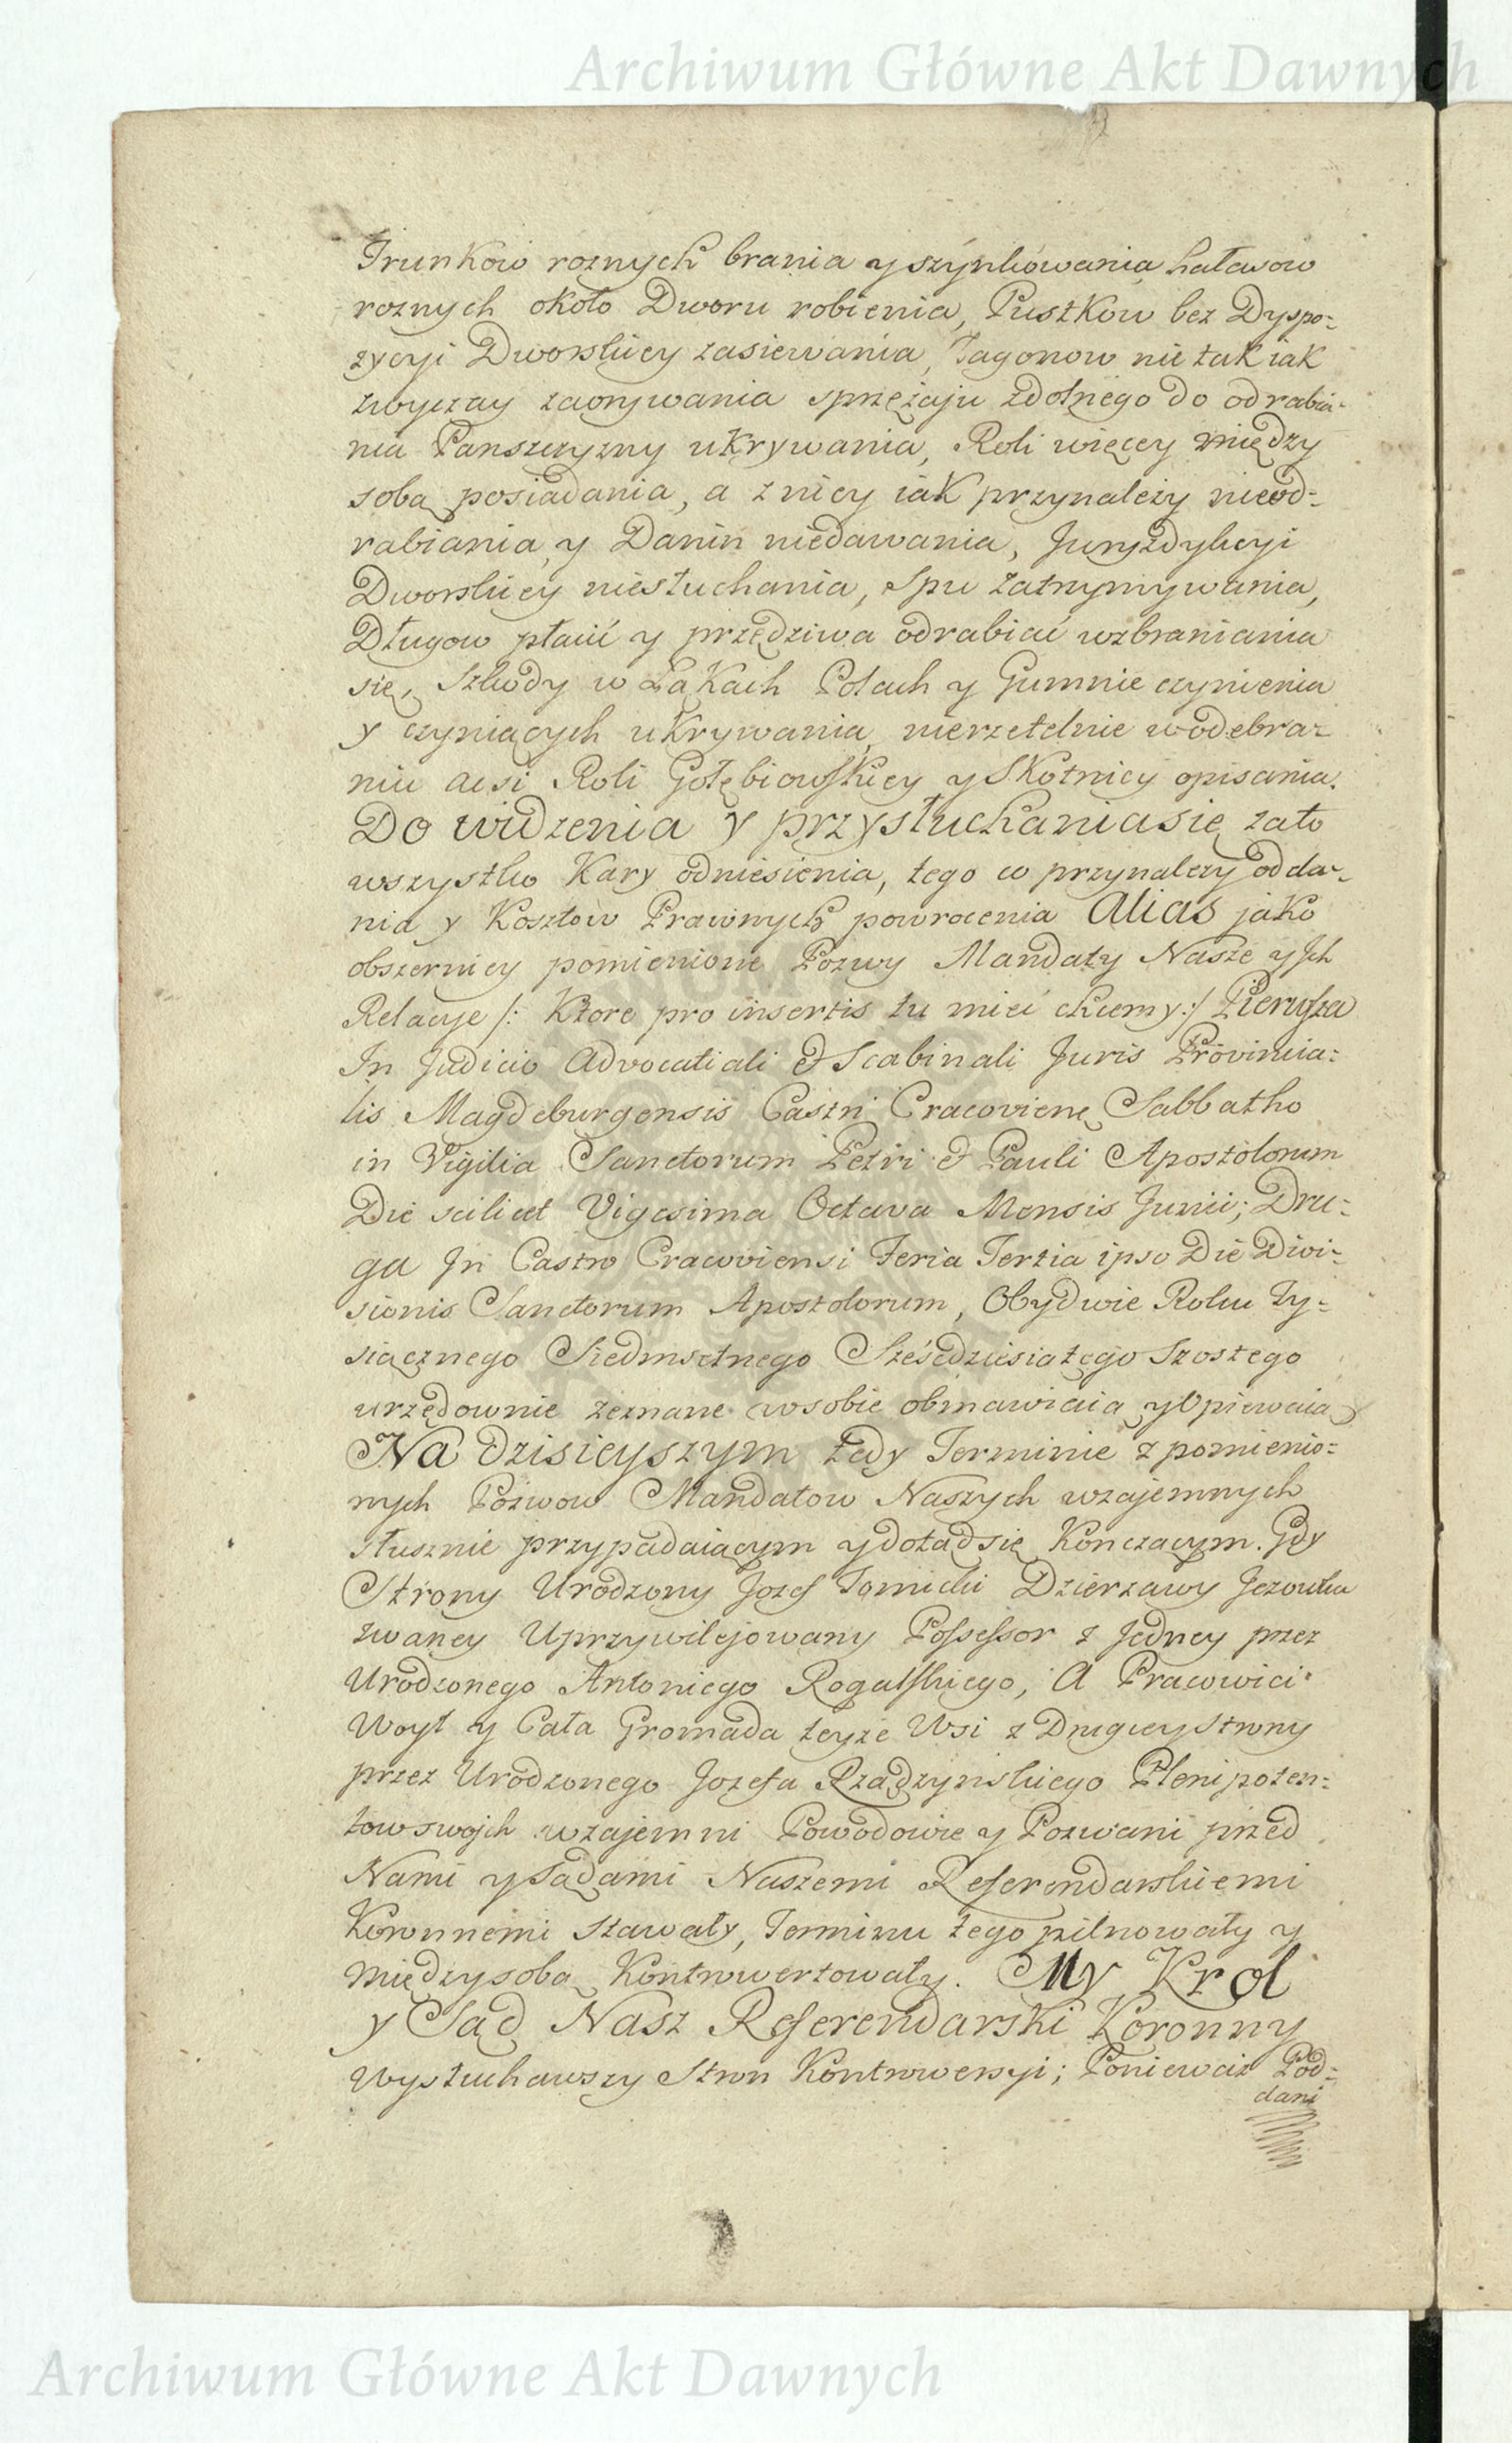 Archiwum Główne Akt Dawnych
Trunkow roznych brania y szynkowania hałasow
roznych około Dworu robienia, Pustkow bez Dyspo-
zycyi Dworskiey zasiewania, Zagonow nie tak iak
zwyczay zaorywania sprzężaju zdolnego do odrabia-
nia Panszczyzny ukrywania, Roli więcey między
sobą posiadania, a z niey iak przynależy nieod-
rabiania y Danin niedawania, Juryzdykcyi
Dworskiey niesłuchania, Spu zatrzymywania,
Długow płacić y przędziwa odrabiać wzbraniania
się, Szkody w Łąkach Polach y Gumnie czynienia
y czyniących ukrywania, nierzetelnie w odebra-
niu Roli Gołębiowskiey y Skotnicy opisania.
Do widzenia y przysłuchania się za to
wszystko Kary odniesienia, tego co przynalezy odda-
nia y Kosztow Prawnych powrocenia Alias jako
obszerniey pomienione Pozwy Mandaty Nasze y Jch
Relacye /: Ktore pro insertis tu mieć chcemy :/ Pierwsza
In Judicio Advocatiali & Scabinali Juris Provincia-
lis Magdeburgensis Castri Cracovienẹ Sabbatho
in Vigilia Sanctorum Petri & Pauli Apostolorum
Die scilicet Vigesima Octava Mensis Junii; Dru-
ga Jn Castro Cracoviensi Feria Tertia ipso Die Divi-
sionis Sanctorum Apostolorum, Obydwie Roku Ty-
siącznego Siedmsetnego Sześćdziesiątego Szostego
urzędownie zeznane w sobie obmawiaią y Opiewaią
Na dzisieyszym tedy Terminie z pomienio-
nych Pozwow Mandatow Naszych wzajemnych
słusznie przypadaiącym y dotąd się Kończącym. Gdy
Strony Urodzony Jozef Tomicki Dzierzawy Jezowka
zwaney Uprzywilejowany Possessor z Jedney przez
Urodzonego Antoniego Rogalskiego, A Pracowici
Woyt y Cała Gromada teyże Wsi z Drugiey strony
przez Urodzonego Jozefa Rządzyńskiego Plenipoten-
tow swojch wzajemni Powodowie y Pozwani przed
Nami y Sądami Naszemi Referendarskiemi
Koronnemi stawały, Terminu tego pilnowały y
między sobą Kontrowertowały. My Krol
y Sąd Nasz Referendarski Koronny
Wysłuchawszy Stron Kontrowersyi; Ponieważ Pod-
dani
Archiwum Główne Akt Dawnych